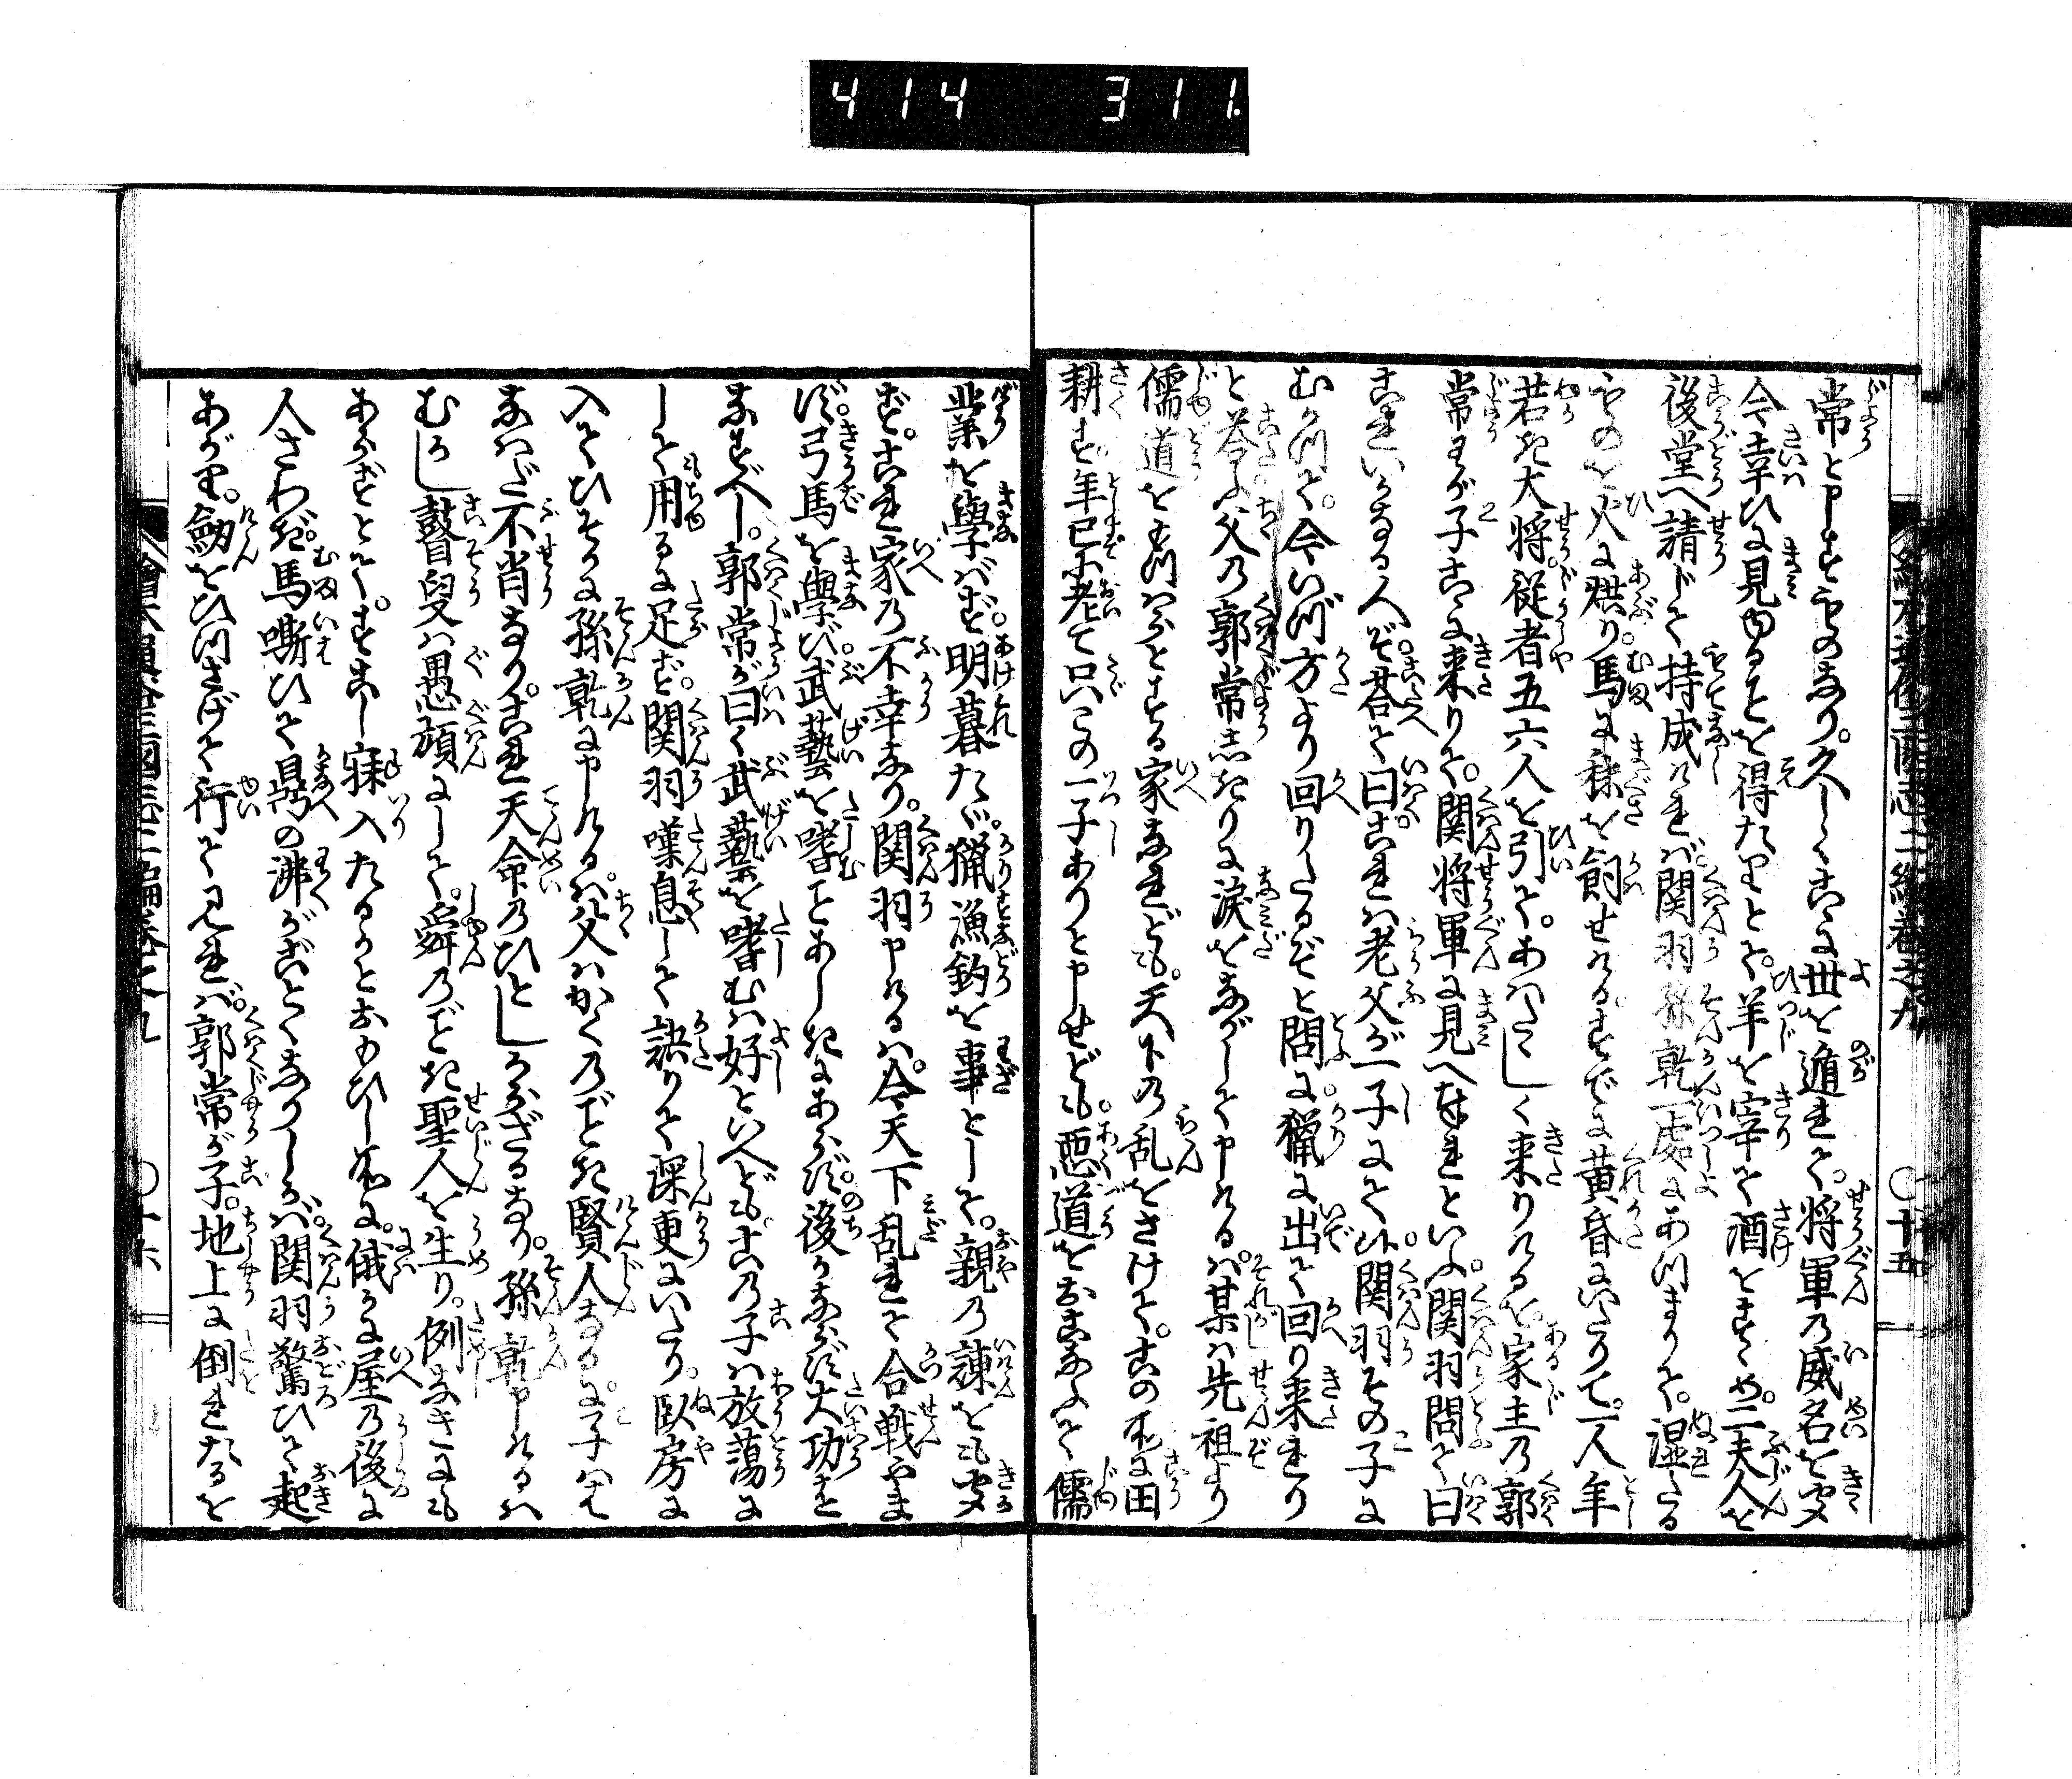 414 311.
繪本通俗三國志二編卷之九 〇十五
常と申すものなり。久しくこゝに世を遁れて。将軍の威名を聞
今幸ひに見ゆることを得たりとて。羊を宰て酒をすゝめ。二夫人を
後堂へ請じて持成ければ。関羽孫乾一処にあつまりて。湿たる
ものを火に烘り。馬に秣を飼せける。すでに黄昏にいたりて。一人年
若き大将。従者五六人を引て。あはたゝしく来りけるを。家主の郭
常わが子こゝに来りて。関将軍に見へ奉れといふ。関羽問て曰
これいかなる人ぞ。答て曰。これは老父が一子にて候。関羽その子に
むかつて。今いづ方より回りたるぞと問に。猟に出て回り来れり
と答ふ。父の郭常志きりに涙をながして申けるは。某は先祖より
儒道をもつはらとする家なれども。天下の乱をさけて。この所に田
耕す。年已に老て只この一子ありと申せども。悪道をおこなふて儒
業を學ばず。明暮たゞ。猟漁釣を事として。親の諌をも聞
ず。これ家の不幸なり。関羽申けるは。今天下乱れて合戦やま
ず。弓馬を學び。武藝を嗜ことあしきにあらず。後かならず大功を
なすべし。郭常が曰く武藝を嗜むは好といへども。この子は放蕩に
して用るに足ず。関羽嘆息して訣りて深更にいたり。臥房に
入てひそかに孫乾に申けるは。父はかくのごとき賢人なるに。子はは
なはだ不肖なり。これ天命のひとしからざるなり。孫乾申けるは
むかし瞽叟は愚頑にして。舜のごとき聖人を生り。例なきにも
あらずとて。すこし寐入たるかとおもひし所に。俄かに屋の後に
人さわぎ。馬嘶ひて鼎の沸がごとくなりしかば。関羽驚ひて起
あがり。劔をひつさげて行て見れば。郭常が子。地上に倒れたるを
繪本通俗三國志二編卷之九